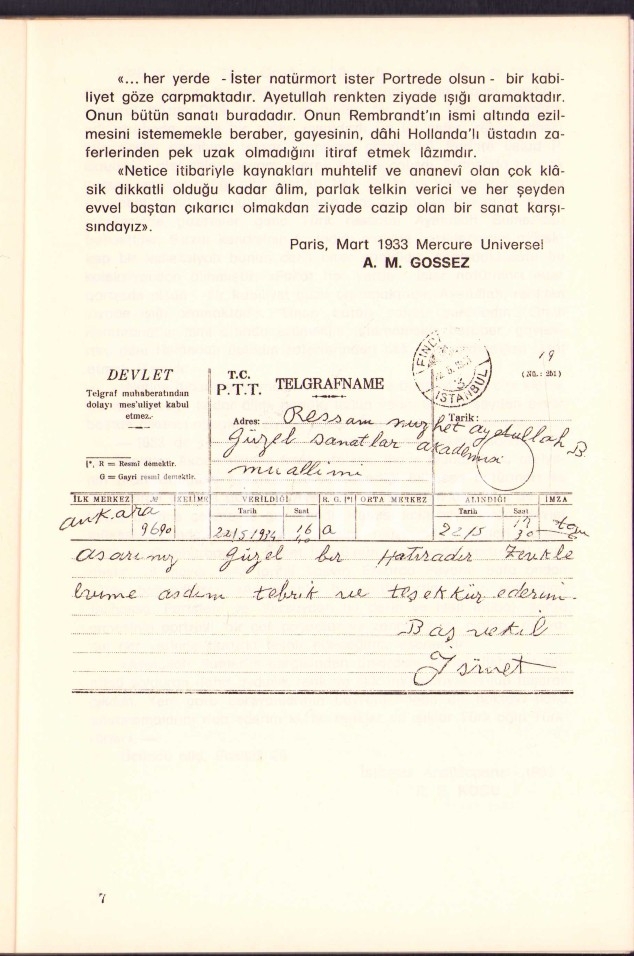 «... her yerde - İster natürmort ister Portrede olsun - bir kabi-
liyet göze çarpmaktadır. Ayetullah renkten ziyade ışığı aramaktadır.
Onun bütün sanatı buradadır. Onun Rembrandt'ın ismi altında ezil-
mesini istememekle beraber, gayesinin, dâhi Hollanda'lı üstadın za-
ferlerinden pek uzak olmadığını itiraf etmek lâzımdır.
«Netice itibariyle kaynakları muhtelif ve ananevî olan çok klâ-
sik dikkatli olduğu kadar âlim, parlak telkin verici ve her şeyden
evvel baştan çıkarıcı olmakdan ziyade cazip olan bir sanat karşı-
sındayız».
Paris, Mart 1933 Mercure Universel
A. M. GOSSEZ
DEVLET
Telgraf muhaberatından
dolayı mes'uliyet kabul
etmez.
[*, R = Resmî demektir.
G = Gayri resmî demektir.
T.C.
P.T.T. TELGRAFNAME
İSTANBUL
19
(No.: 251)
Adres: Ressam nuzhet ayetullah B.
Tarih:
Güzel sanatlar akademisi
muallimi
İLK MERKEZ № KELİME VERİLDİĞİ R. G. [*] ORTA MERKEZ ALINDIĞI İMZA
Tarih Saat Tarih Saat
ankara 9690 22/5/1934 16 a 22/5 17 30
asarınız güzel bir Hatıradır Zevkle
evime asdım tebrik ve teşekkür ederim.
Baş vekil
İsmet
7